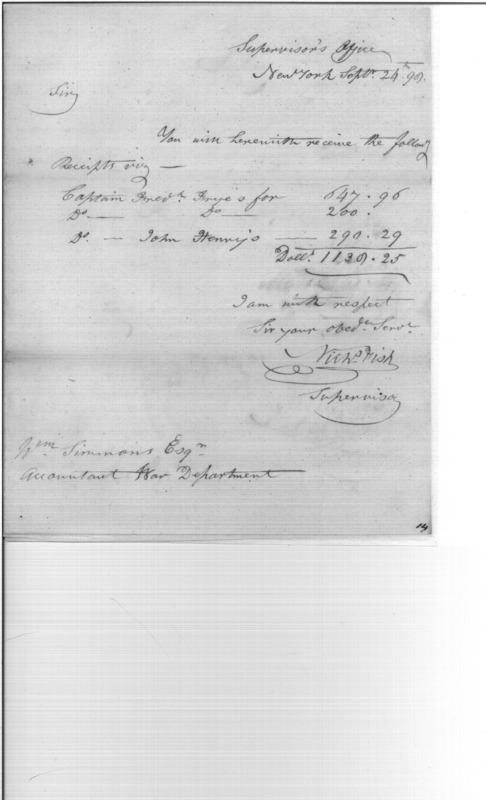 Supervisor's Office
New York Septr. 24th 98.
Sir
You will herewith receive the followg
Receipts viz —
Captain Fredk. Frye's for 647.96
Do — Do — 200.
Do. — John Henry's — 290.29
Dolls. 1138.25
I am with respect
Sir your obedt. Servt.
Nichs. Fish
Supervisor
Wm. Simmons Esqr.
Accountant War Department
14